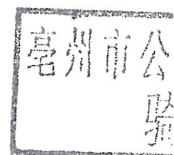 亳州市公